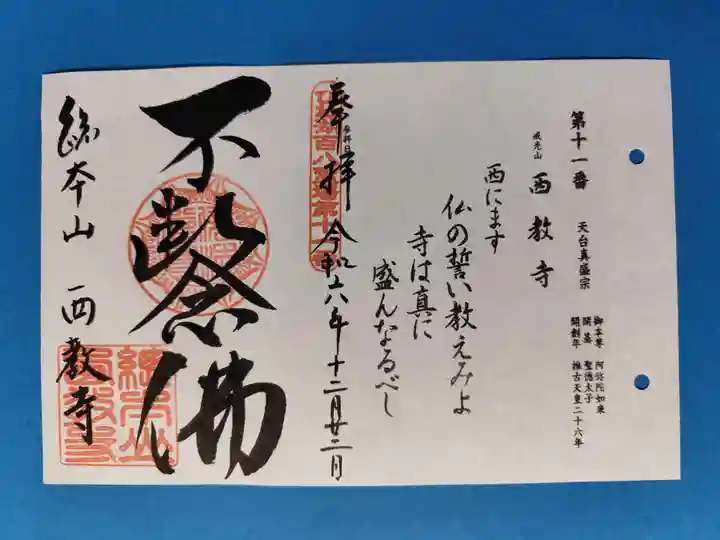 第十一番
天台真盛宗
戒光山
西教寺
御本尊 阿弥陀如来
開基 聖徳太子
開創年 推古天皇二十六年
西にます
仏の誓い教えみよ
寺は真に
盛んなるべし
奉拝
参拝日
令和六年十二月廿二日
不断念佛
総本山 西教寺